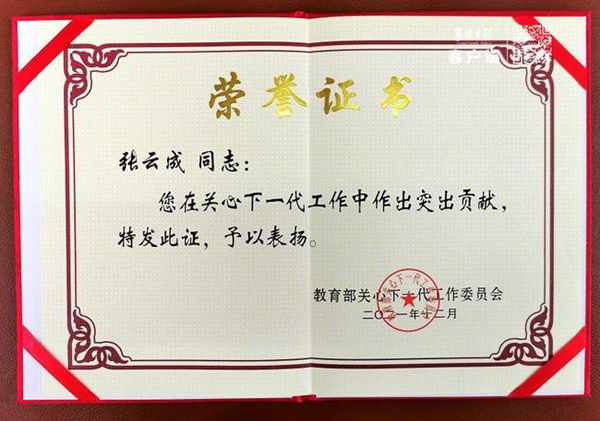 客户端
荣誉证书
张云成 同志：
您在关心下一代工作中作出突出贡献，
特发此证，予以表扬。
教育部关心下一代工作委员会
二〇二一年十二月